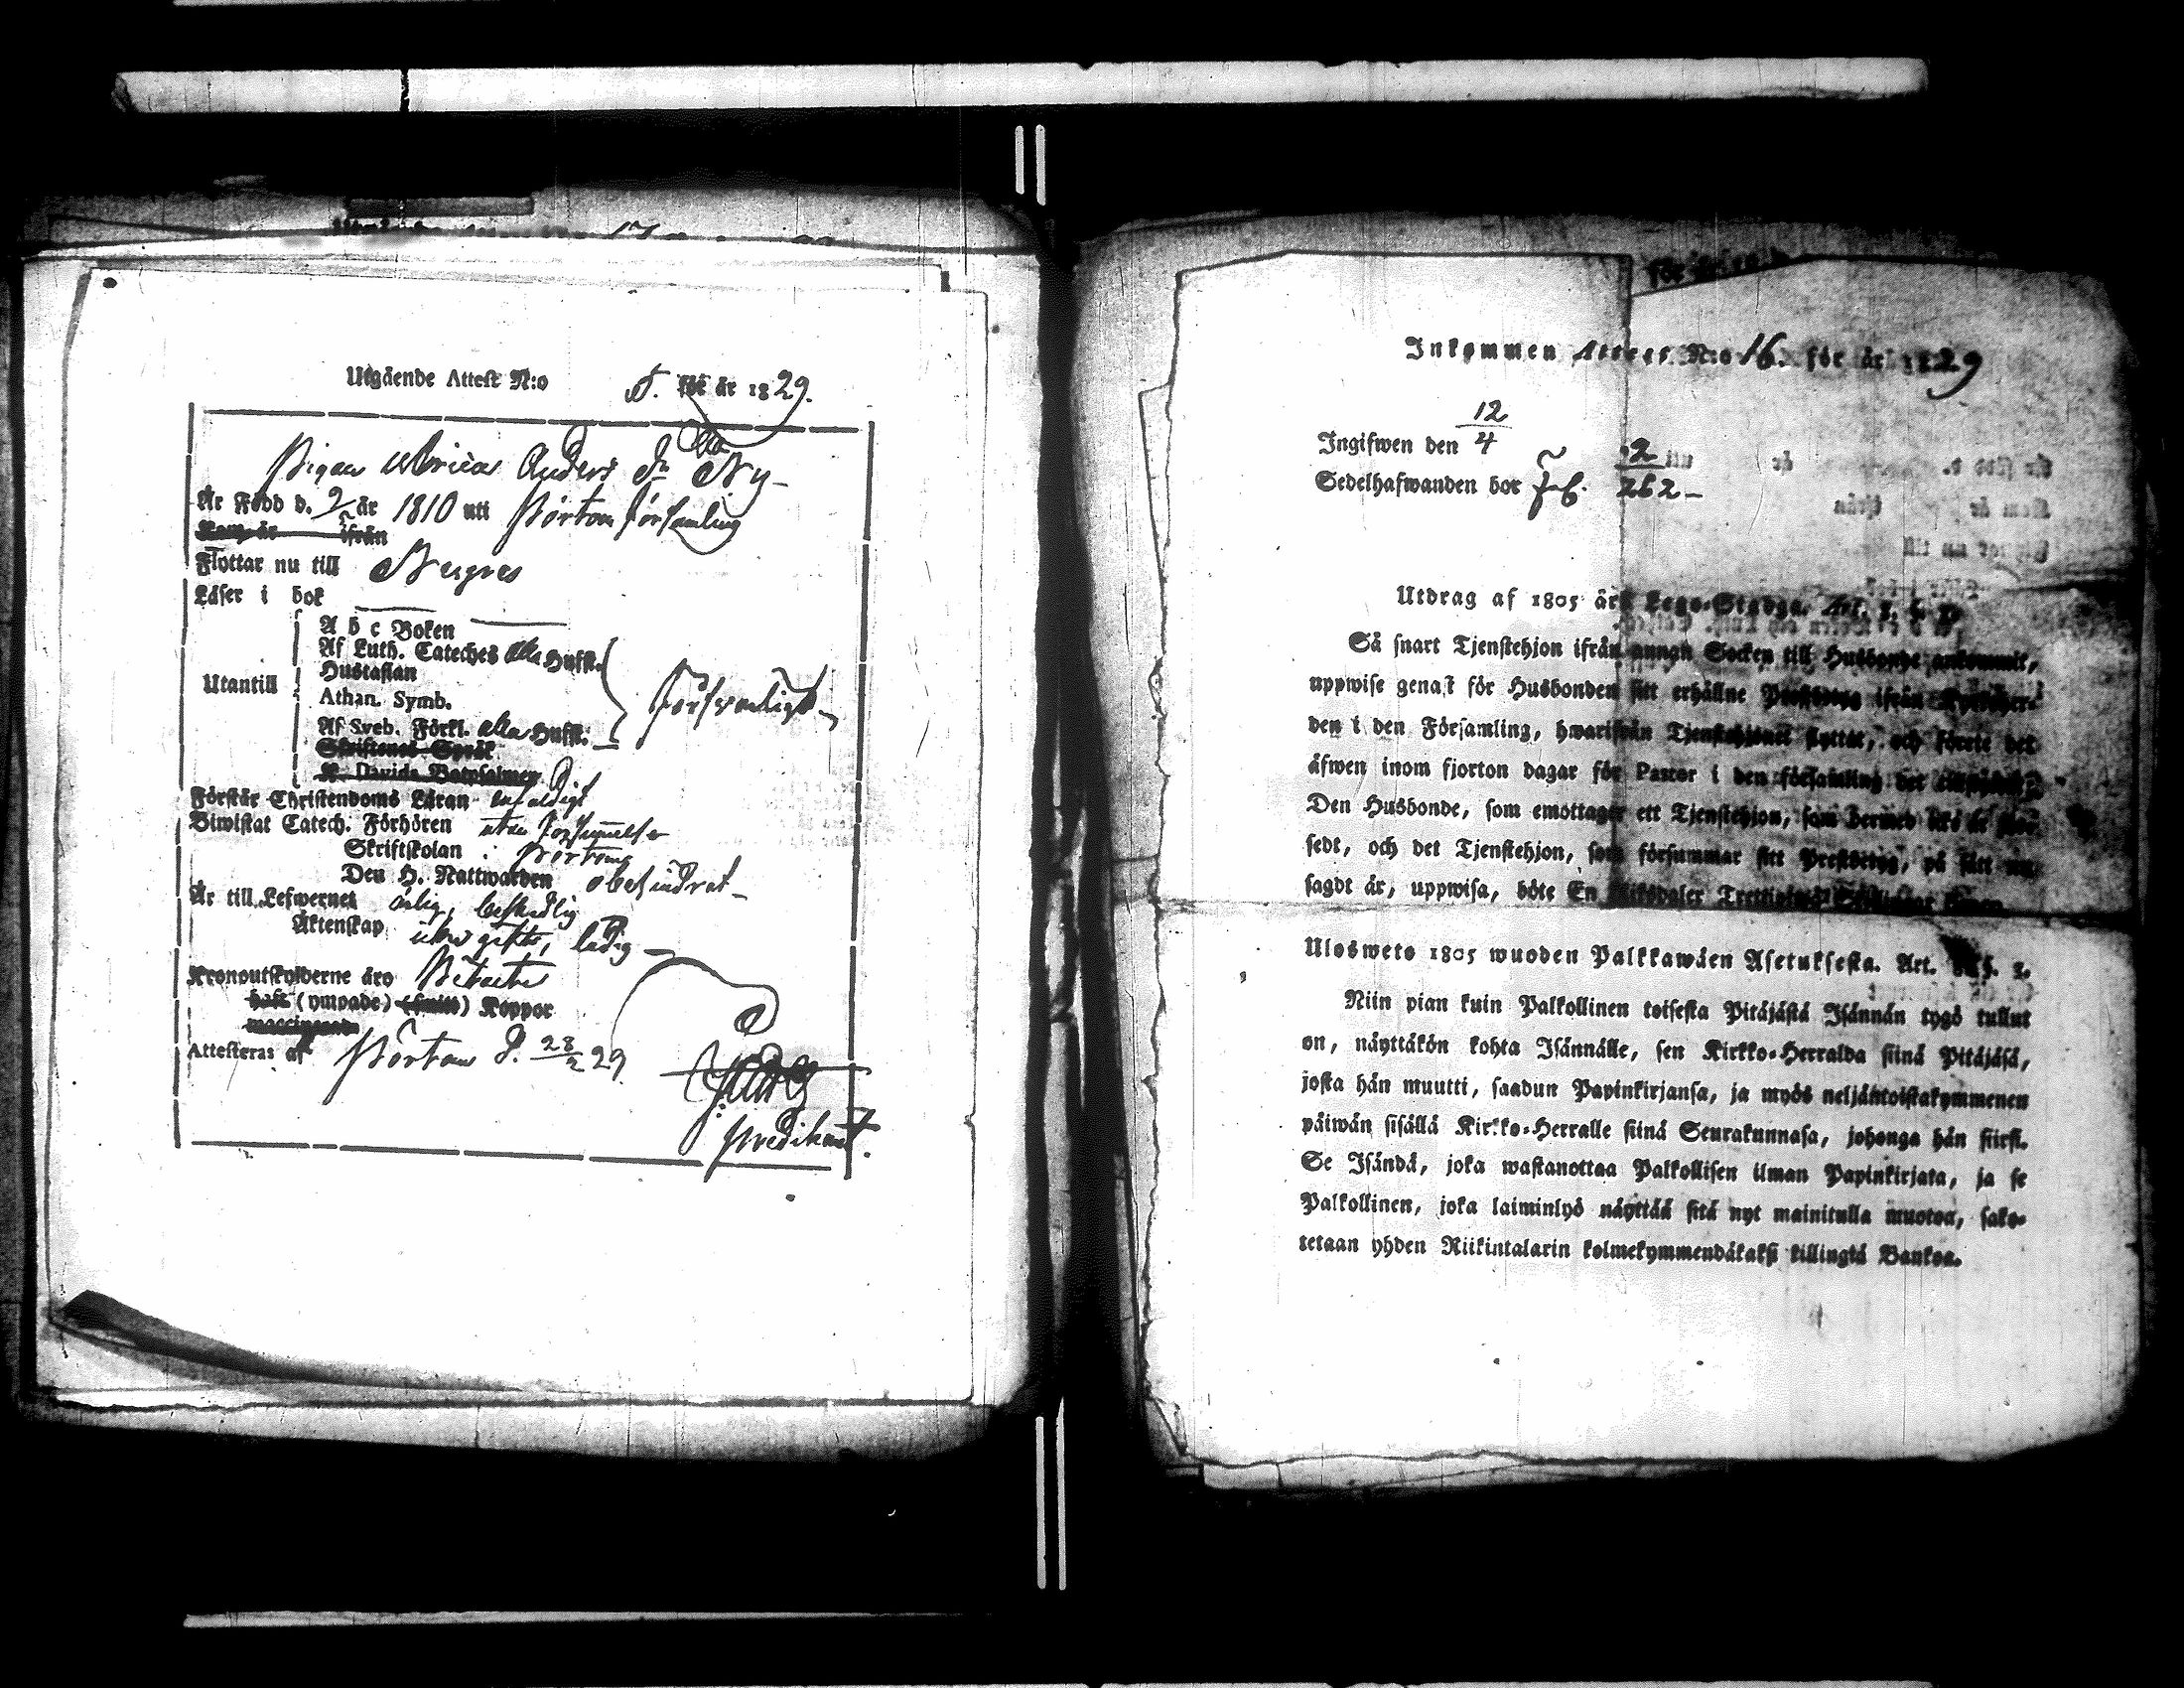 Utgående Attest N:o 5. för år 1829.
Pigan Anders Dr Ny-
Är Född d. 9 år 1810 uti Pörtom församling
Kom år ifrån
Flyttar nu till
Läser i bok
A b c Boken
Af Luth. Cateches alla Hufst.
Hustaflan
Utantill
Athan. Symb.
Af Sveb. Förkl. alla Hufst.
försvarligt
Skriftenes Språk
K. Davids Botpsalmer
Förstår Christendoms Läran enfaldigt
Biwistat Catech. Förhören utan försummelse
Skriftskolan i Pörtom
Den H. Nattwarden obehindrat
Är till Lefwernet ärlig, beskedlig
Äktenskap ledig
Kronoutskylderne äro Betalte
haft (ympade) Koppor
vaccinerad
Attesteras af Pörtom d. 28/2 29.
Predikant.
Inkommen Attest N:o 16. för år 1829
Ingifwen den 12/4
Sedelhafwanden bor 262
Utdrag af 1805 års Lego-Stadga. Art.
Så snart Tjenstehjon ifrån annan Socken till Husbonde ankommit,
uppwise genast för Husbonden sitt erhållne Prestbetyg ifrån Kyrkoher-
den i den Församling, hwarifrån Tjenstehjonet flyttat, och förete det
äfwen inom fjorton dagar för Pastor i den församling det
Den Husbonde, som emottager ett Tjenstehjon, som dermed icke är för-
sedt, och det Tjenstehjon, som försummar sitt Prestbetyg, på sätt nu
sagdt är, uppwisa, böte En Riksdaler Trettiotwå Skillingar Banco.
Ulosweto 1805 wuoden Palkkawäen Asetuksesta. Art.
Niin pian kuin Palkollinen toisesta Pitäjästä Isännän tygö tullut
on, näyttäkön kohta Isännälle, sen Kirkko-Herralda siinä Pitäjäsä,
josta hän muutti, saadun Papinkirjansa, ja myös neljäntoistakymmenen
päiwän sisällä Kirkko-Herralle siinä Seurakunnasa, johonga hän siirsi.
Se Isändä, joka wastanottaa Palkollisen ilman Papinkirjata, ja se
Palkollinen, joka laiminlyö näyttää sitä nyt mainitulla muotoa, sako-
tetaan yhden Riikintalarin kolmekymmendäkaksi killingiä Bankoa.